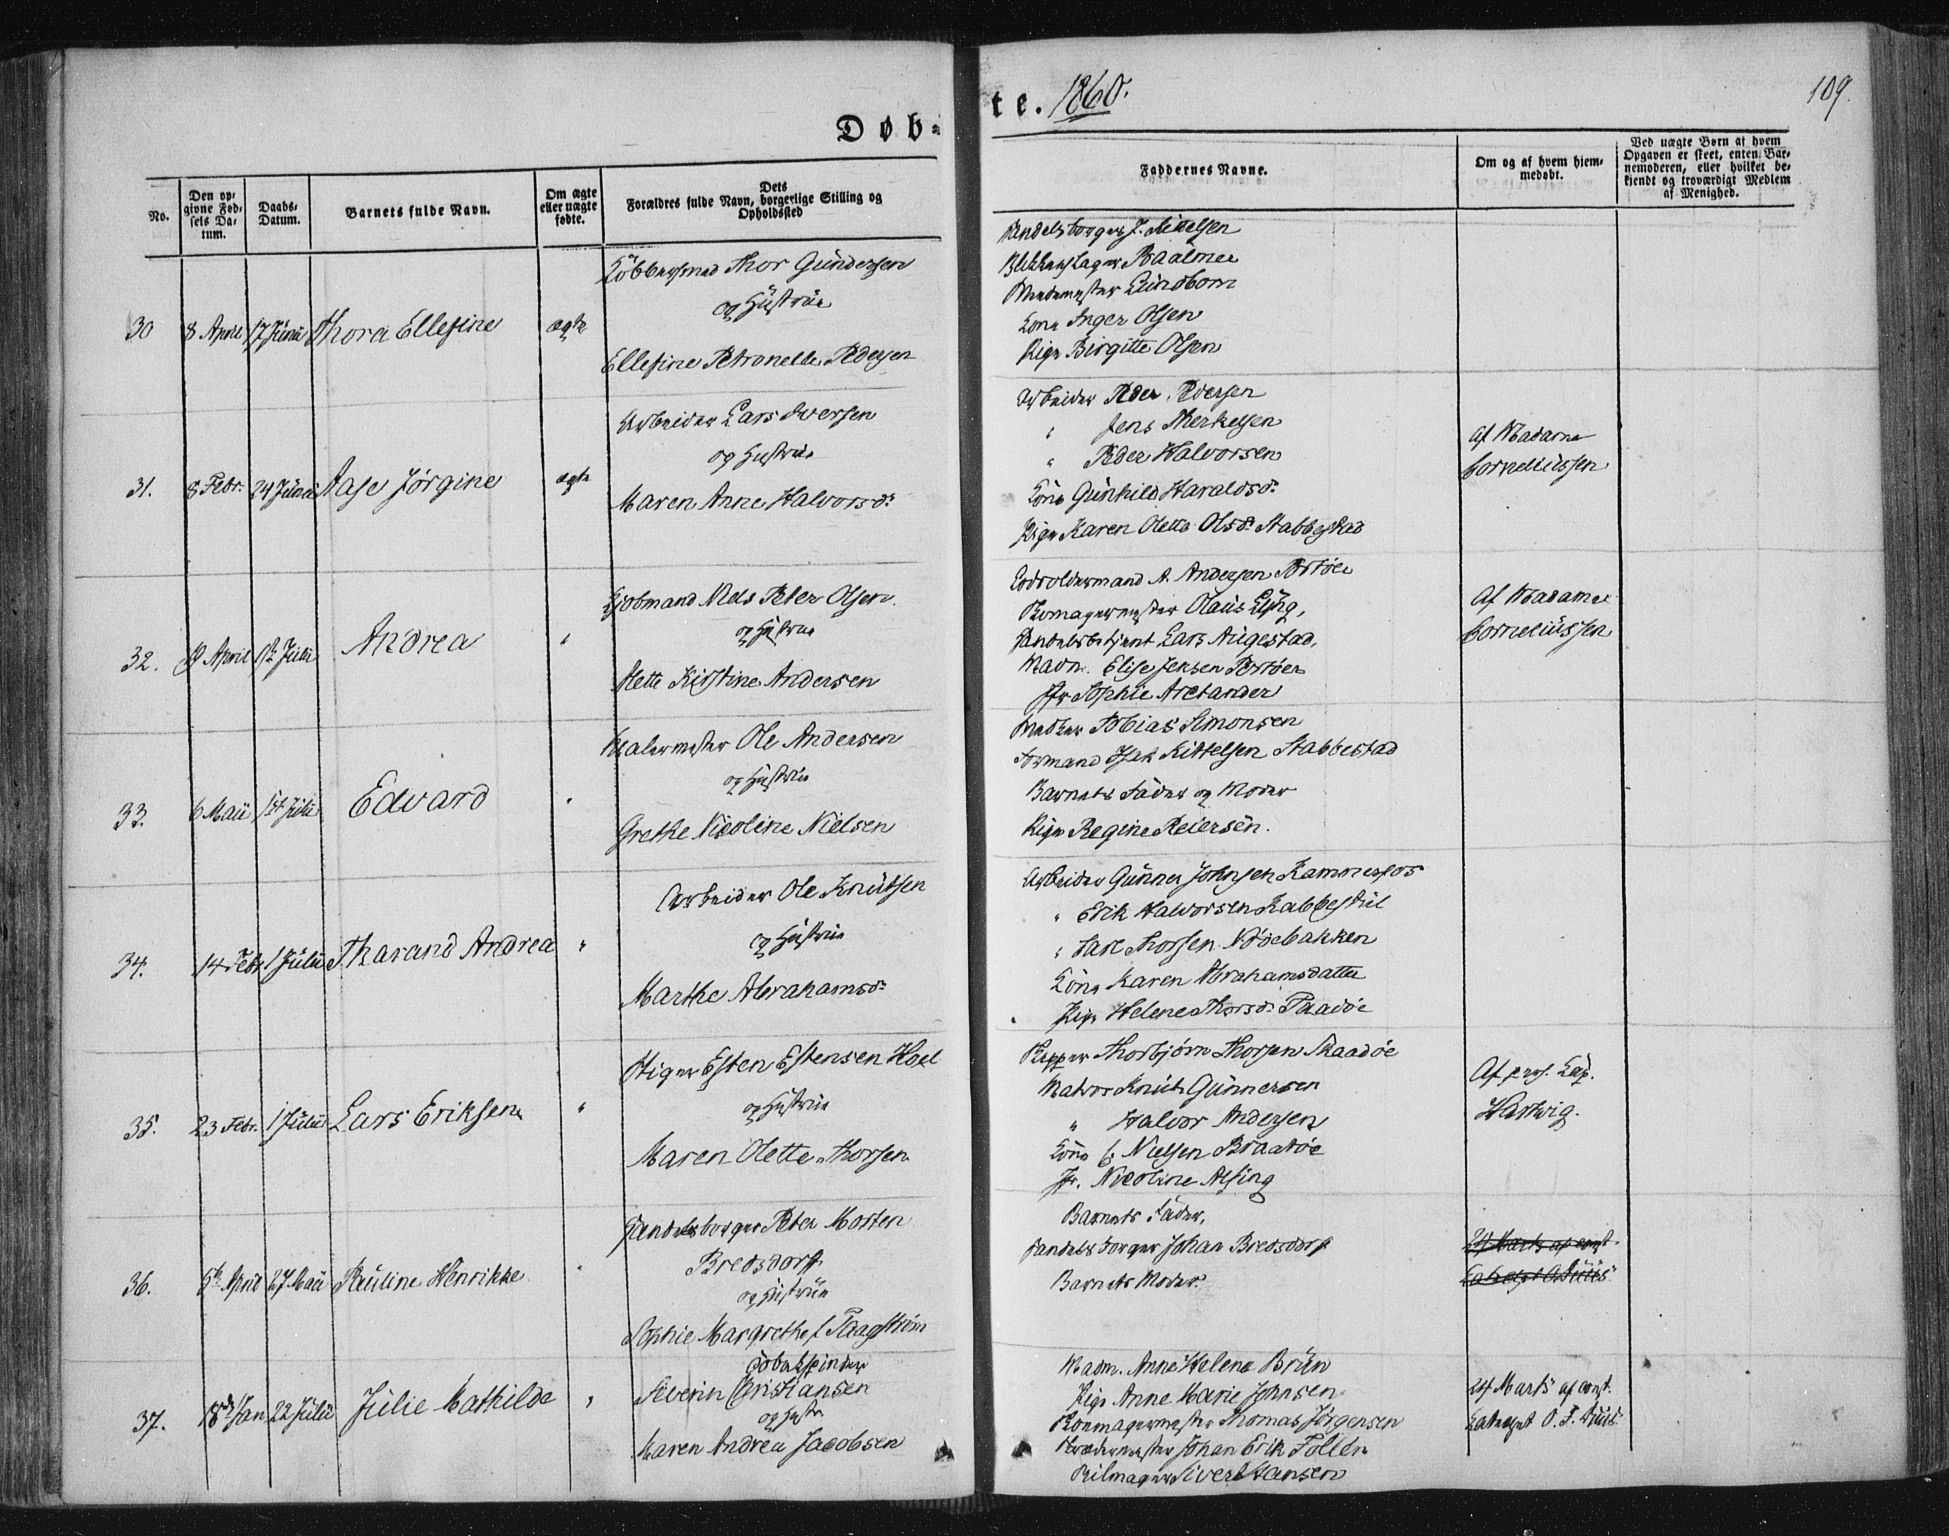 Døb=
te. 1860.
109.
No.
Den op-
givne Fød-
sels Da-
tum.
Daabs-
Datum.
Barnets fulde Navn.
Om ægte
eller uægte
fødte.
Dets
Forældres fulde Navn, borgerlige Stilling og
Opholdssted
Faddernes Navne.
Om og af hvem hjem-
medøbt.
Ved uægte Børn af hvem
Opgaven er skeet, enten Bar-
nemoderen, eller hvilket be-
kjendt og troværdigt Medlem
af Menighed.
30
8 April
17 Juni
Thora Ellefine
ægte
Kobbersmed Thor Gundersen
og Hustrue
Ellefine Petronelle Pedersen
Handelsborger J. Kittelsen
Blikkenslager Baalmee
Lundbom
Kone Inger Olsen
Pige Birgitte Olsen
31.
8 Febr.
24 Juni
Aase Jørgine
ægte
Arbeider Lars Iversen
og Hustrue
Maren Anne Halvorsd:
Arbeider Peder Pedersen
" Jens Therkelsen
" Peder Halvorsen
Kone Gunhild Haraldsd:
Pige Karen Olette Olsd: Stabbestad
Af Madame
Corneliussen
32.
9 April
1ste Juli
Andrea
"
Kjøbmand Niels Peter Olsen
og Hustrue
Mette Kirstine Andersen
Lodsoldermand A. Andersen Portøer
Olaus Lyng,
Handelsbetjent Lars Augestad,
Madm. Elise Jensen Portøer
Jfr Sophie Arctander
Af Madame
Corneliussen
33.
6 Maii
1ste Juli
Edvard
"
Malermester Ole Andersen
og Hustrue
Grethe Nicoline Nielsen
Tobias Simonsen
Formand Isak Kittelsen Stabbestad
Barnets Fader og Moder
Pige Regine Reiersen.
34.
14 Febr
1 Julii
Tharand Andrea
"
Arbeider Ole Knutsen
og Hustrue
Marthe Abrahamsd:
Arbeider Gunner Johnsen Kammerfos
" Erik Halvorsen Kalbestul
" Carl Thorsen
Kone Karen Abrahamsdatter
Pige Helene Thorsd:
35.
23 Febr.
1 Julii
Lars Eriksen
"
Stiger Esten Estensen Hoel
og Hustrue
Maren Olette Thorsen
Skipper Thorbjørn Thorsen Skaadøe
Matros Knut Gunnersen
" Halvor Andersen
Kone C. Nielsen Braatøe
Jfr. Nicoline Alsing
Af pers. Cap.
Hartwig.
36.
5te April
27 Maii
Pauline Henrikke
"
Handelsborger Peter Morten
Bredsdorff
og Hustrue
Sophie Margrethe f. Taagstrøm
Barnets Fader,
Handelsborger Johan Bredsdorf
Barnets Moder.
24 Marts af const.
37.
18de Jan
22 Julii
Julie Mathilde
"
Tobakspinder
Severin Christiansen
og Hustr
Maren Andrea Jacobsen
Madm. Anne Helene Brun
Pige Anne Marie Johnsen
Thomas Jørgensen
Skrædermester Johan Erik Follin
Sivert Hansen
24 Marts af const.
Catechet